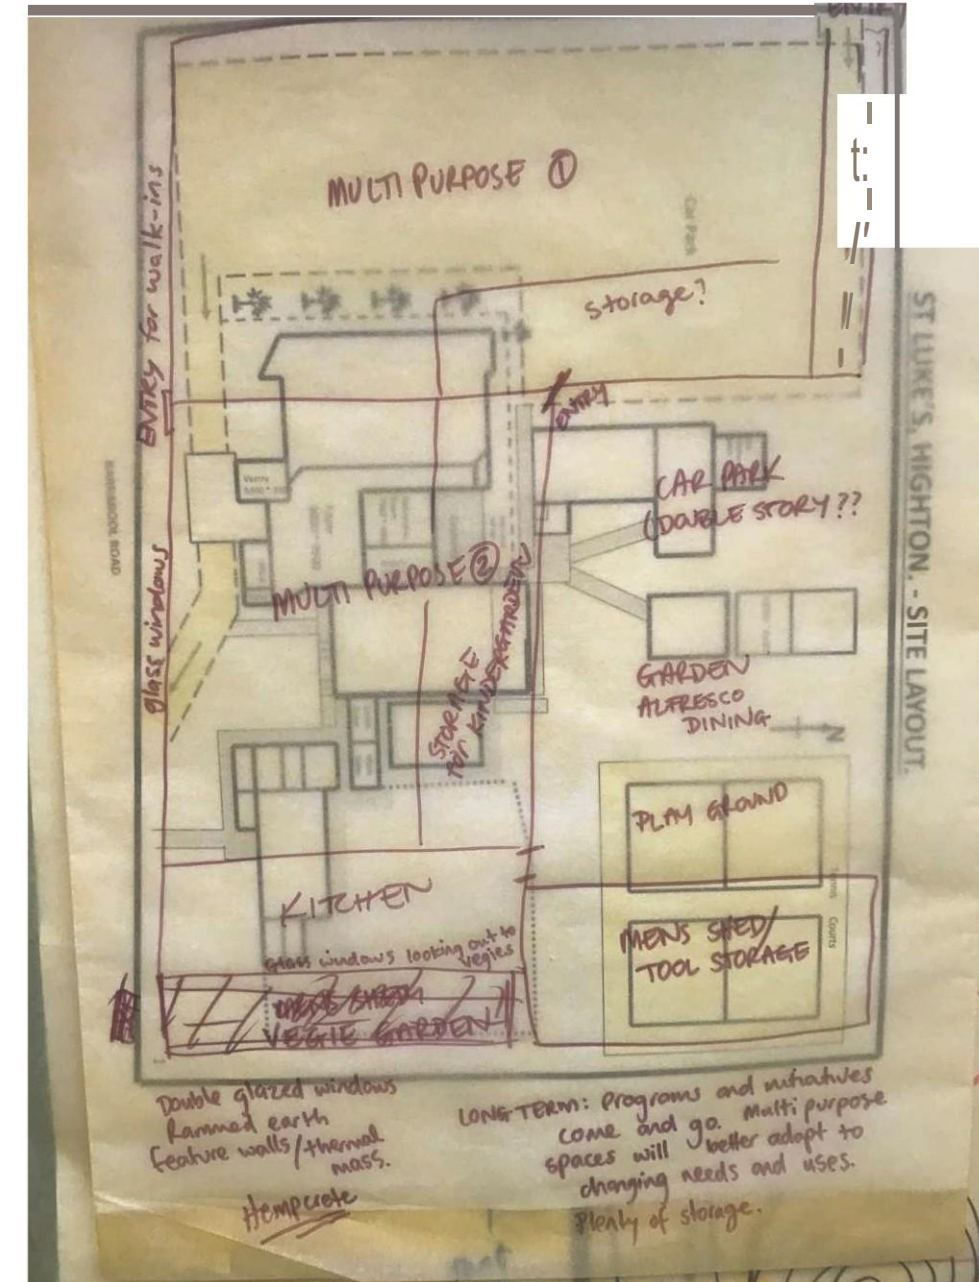 ENTRY
t:
MULTI PURPOSE ①
Car Park
storage?
ENTRY for walk-ins
ENTRY
ST LUKE'S, HIGHTON. - SITE LAYOUT.
CAR PARK
(DOUBLE STORY??
glass windows
MULTI PURPOSE ②
STORAGE
for KINDERGARDEN
GARDEN
ALFRESCO
DINING
N
PLAY GROUND
Courts
KITCHEN
MENS SHED/
TOOL STORAGE
Glass windows looking out to
vegies
MENS SHED/
VEGIE GARDEN
Double glazed windows
Rammed earth
feature walls/thermal
mass.
Hempcrete
LONG TERM: Programs and initiatives
come and go. Multi purpose
spaces will better adapt to
changing needs and uses.
Plenty of storage.